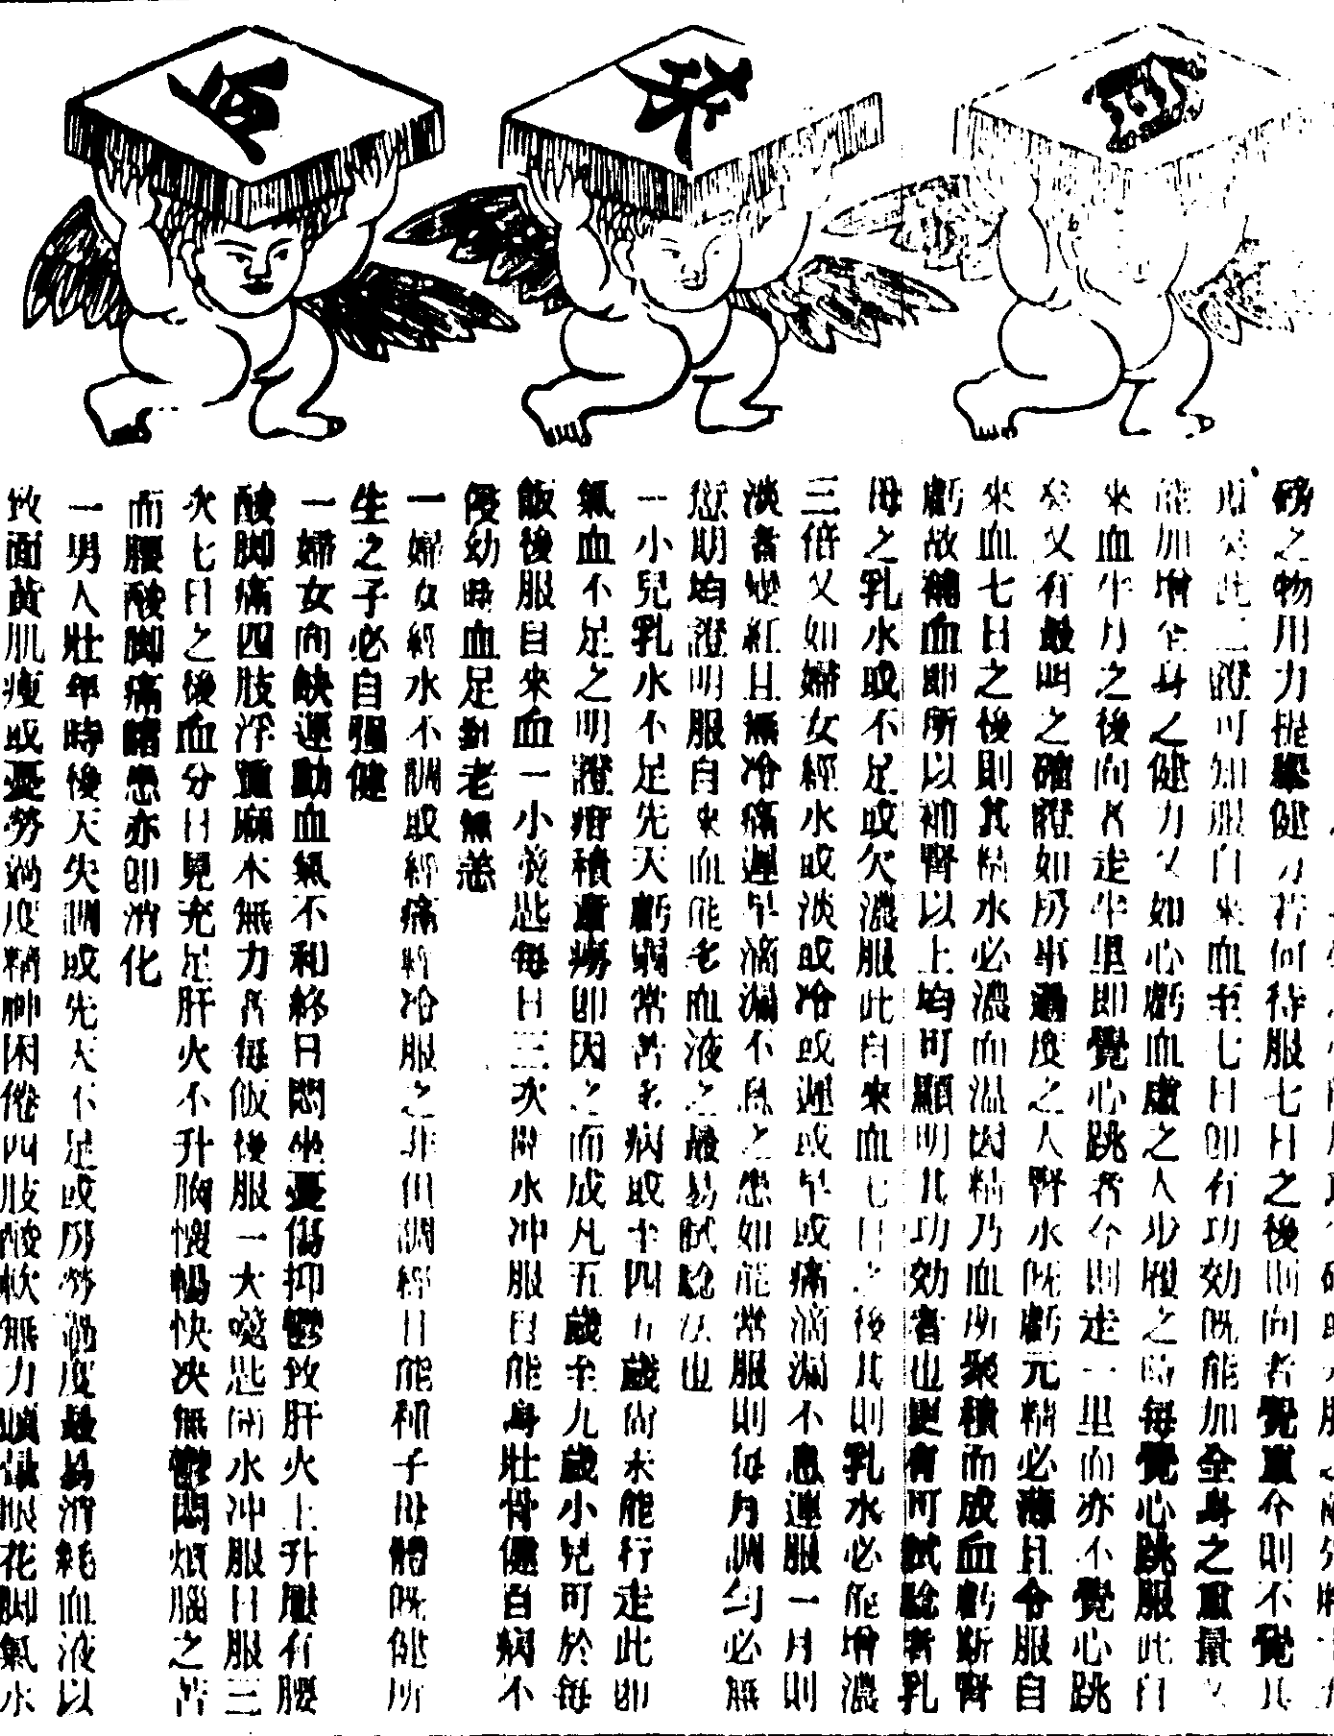 血 來 自
磅之物用力提舉健力若何待服七日之後則向者覺重今則不覺其
此二證可知服自來血至七日即有功効既能加全身之重量又
能加增全身之健力又如心虧血虛之人步履之時每覺心跳服此自
來血半月之後向者走半里即覺心跳者今則走一里而亦不覺心跳
癸又有最明之確證如房事過度之人腎水既虧元精必薄且令服自
來血七日之後則其精水必濃而溫因精乃血所聚積而成血虧斯腎
虧故補血即所以補腎以上均可顯明其功効者也更有可試騐者乳
母之乳水或不足或欠濃服此自來血七日之後其則乳水必能增濃
三倍又如婦女經水或淡或冷或遲或早或痛滴漏不息連服一月則
淡者變紅且無冷痛遲早滴漏不息之患如能常服則每月調勻必無
愆期均證明服自來血能老血液之最易試騐法也
一小兒乳水不足先天虧弱常苦多病或半四五歲尚未能行走此即
氣血不足之明證疳積童癆即因之而成凡五歲至九歲小兒可於每
飯後服自來血一小茶匙每日三次開水冲服自能身壯骨健百病不
侵幼時血足到老無恙
一婦女經水不調或經痛經冷服之非但調經且能種子母體既健所
生之子必自强健
一婦女向缺運動血氣不和終日悶坐憂傷抑鬱致肝火上升屢有腰
酸脚痛四肢浮腫麻木無力者每飯後服一大茶匙開水冲服日服三
次七日之後血分日見充足肝火不升胸懷暢快决無鬱悶煩腦之苦
而腰酸脚痛諸患亦即消化
一男人壯年時後天失調或先天不足或房勞過度最易消耗血液以
致面黃肌瘦或憂勞過度精神困倦四肢酸軟無力頭暈眼花脚氣水